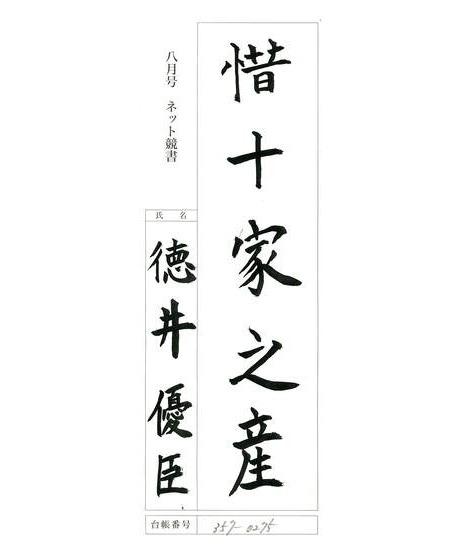 惜十家之産
八月号 ネット競書
氏名
徳井優臣
台帳番号 357-0275